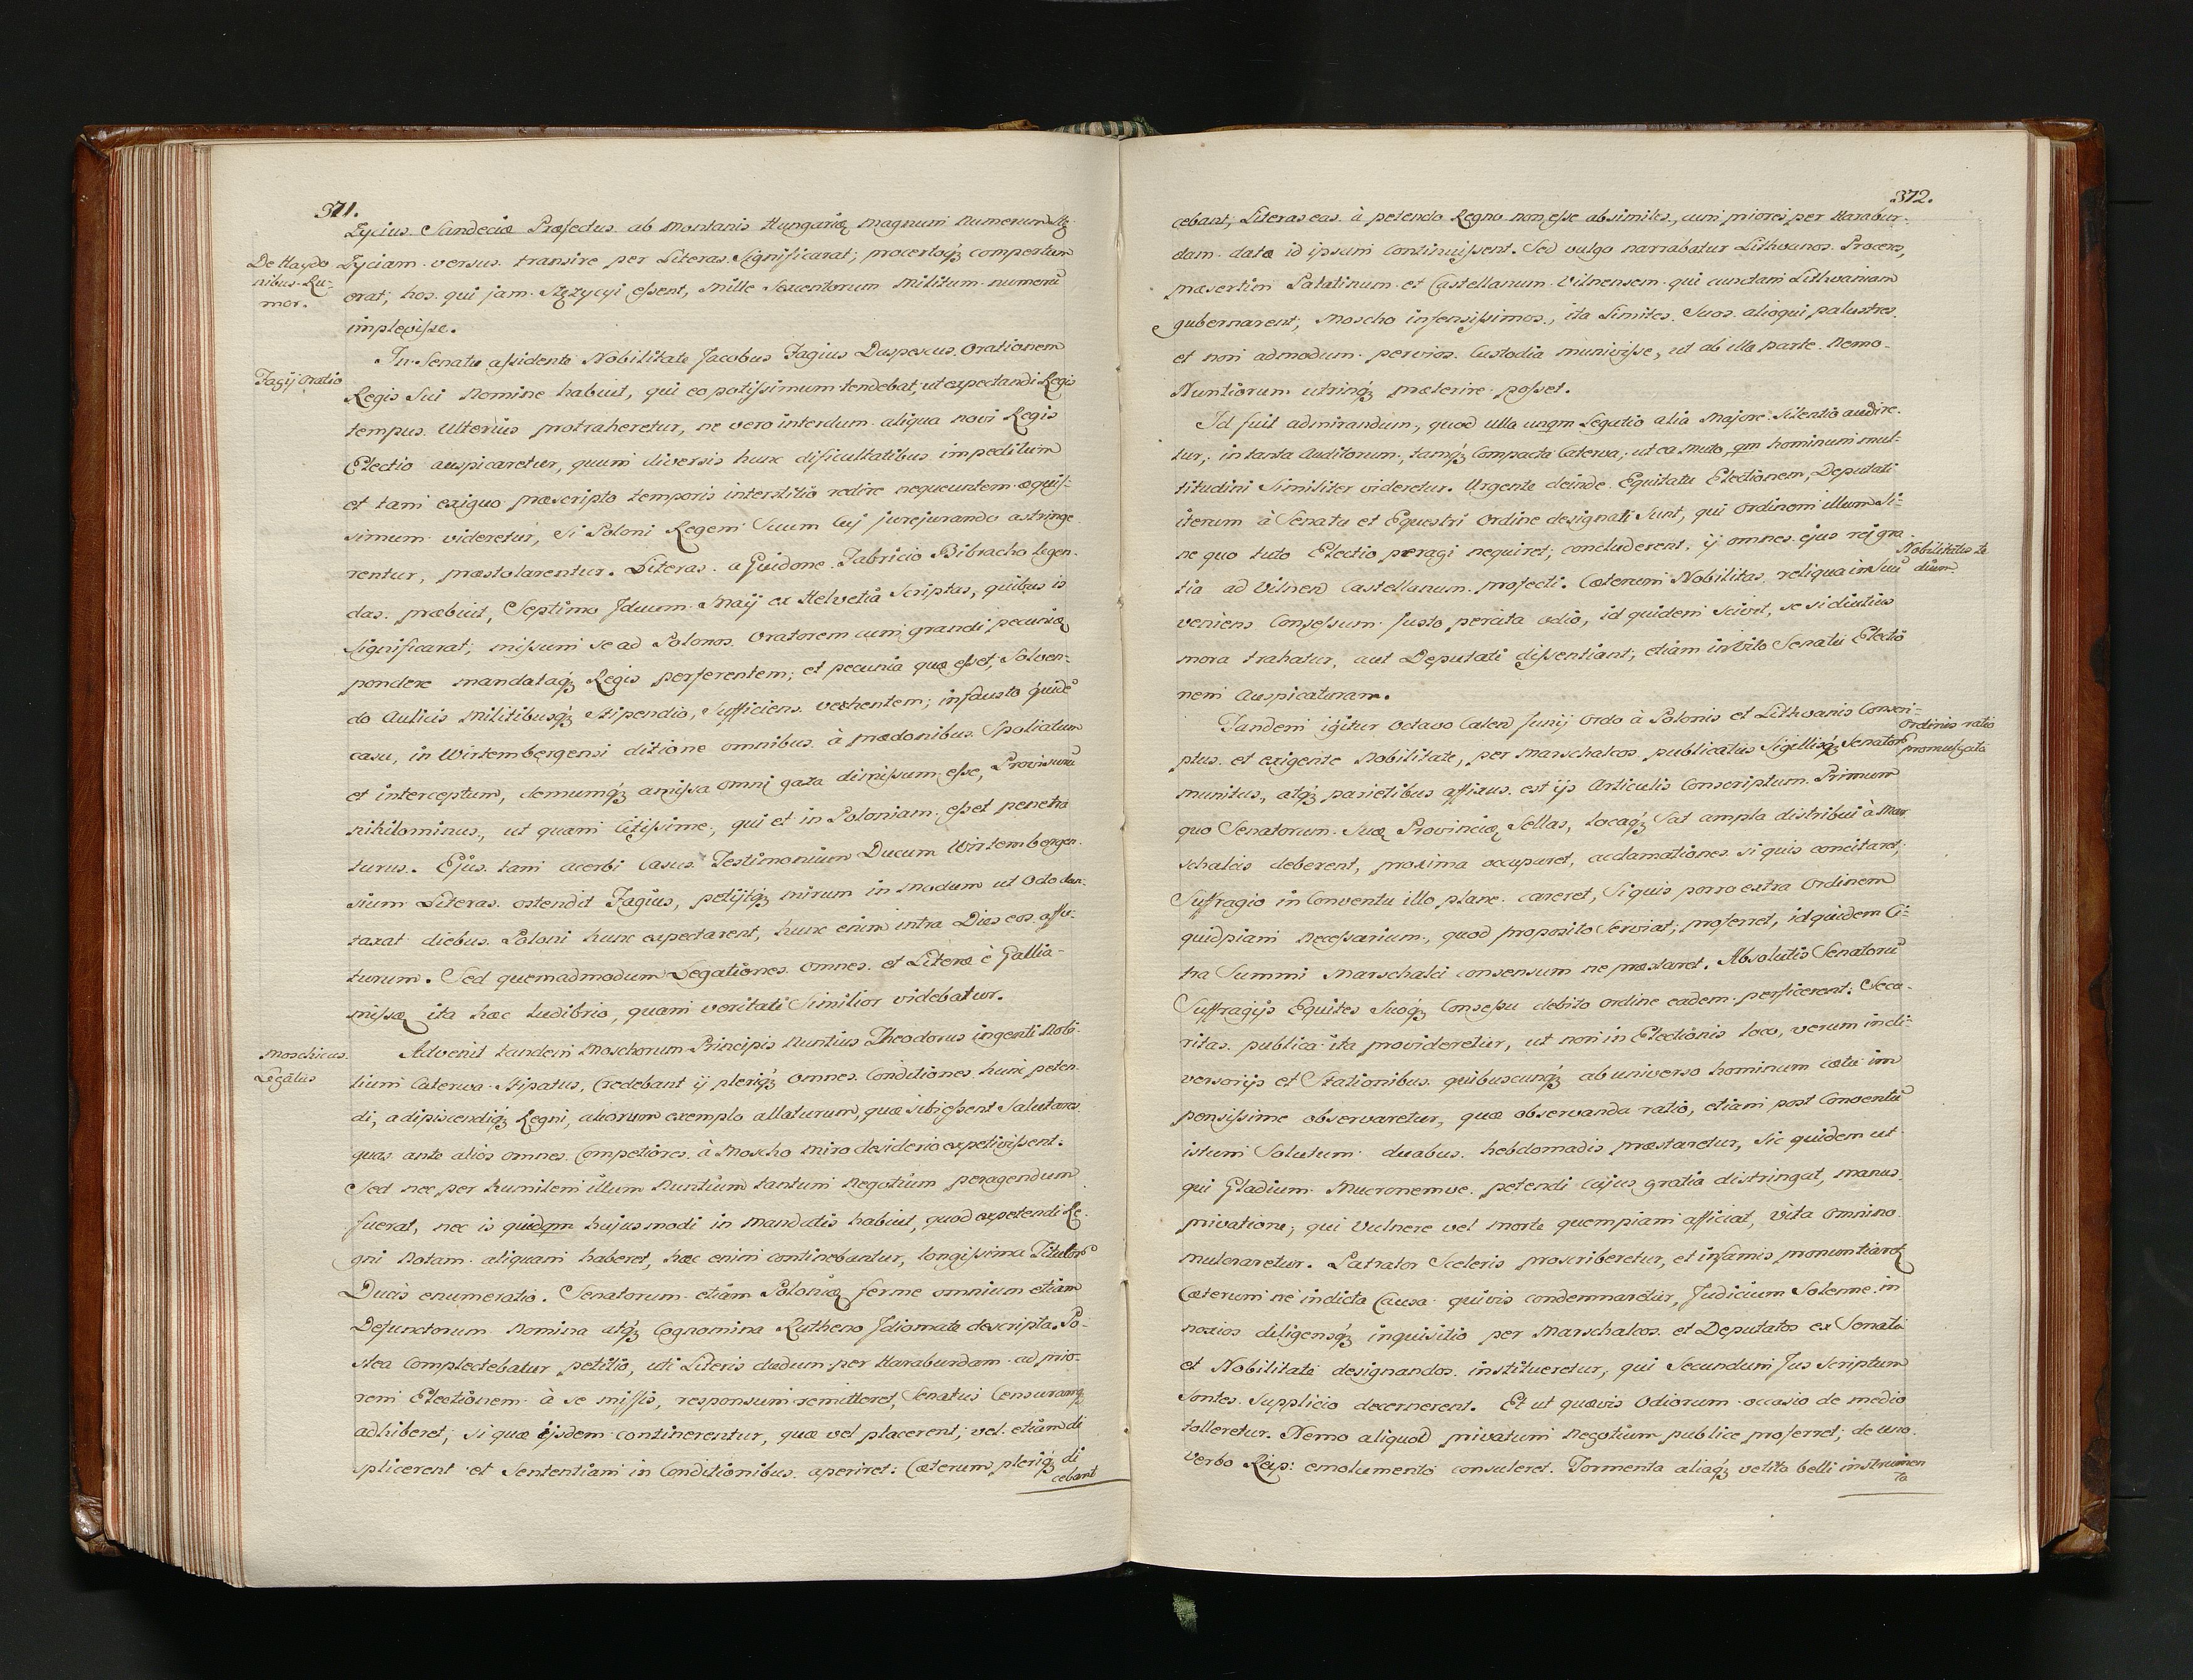 371.
Zycius Sandeciæ Præfectus ab Montanis Hungariæ magnum numerum Stę-
De Haydo
nibus Ru-
mor.
życiam versus transire per Literas significarat; procertoq́ꝫ compertum
erat, hos qui jam Stężycyi essent, Mille Sexcentorum Militum numerū
implevisse.
In Senatu assidente Nobilitate Jacobus Fagius Duspescus Orationem
Fagij Oratio
Regis Sui Nomine habuit, qui eo potissimum tendebat, ut expectandi Regis
tempus Ulterius protraheretur, ne vero interdum aliqua novi Regis
Electio auspicaretur, quum diversis hunc dificultatibus impeditum
et tam exiguo præscripto temporis interstitio redire nequeuntem æquis-
simum videretur, Si Poloni Regem Suum cuj jurejurando astringe
rentur, præstolarentur. Literas a Guidone Fabricio Bibracho legen-
das præbuit, Septimo Iduum Maij ex Helvetia Scriptas, quibus is
significarat, missum se ad Polonos Oratorem cum grandi pecuniæ
pondere mandataq́ꝫ Regis perferentem; et pecunia quæ esset, Solven-
do Aulicis Militibusq́ꝫ Stipendio, Sufficiens vechentem; infausto quidē
casu, in Wirtembergensi ditione omnibus à prædonibus Spoliatum
et interceptum, demumq́ꝫ amissa omni gaza dimissum esse, Provisurū
nihilominus, ut quam Citissime, qui et in Poloniam esset penetra
turus. Ejus tam acerbi Casus Testimonium Ducum Wirtembergen-
sium Literas ostendit Fagius, petijtq́ꝫ mirum in modum ut Octo dun-
taxat diebus Poloni hunc expectarent, hunc enim intra Dies eos affu-
turum. Sed quemadmodum Legationes omnes et Literæ è Gallia
missæ ita hæc ludibrio, quam veritati Similior videbatur.
Moschicus
Legatus
Advenit tandem Moschorum Principis Nuntius Theodorus ingenti Nobi-
lium Caterva Stipatus, Credebant ij pleriq́ꝫ omnes Conditiones hunc peten-
di, adipiscendiq́ꝫ Regni, aliorum exemplo allaturum, quæ sibi essent Salutares
quas ante alios omnes Competitores à Moscho miro desiderio expetivissent.
Sed nec per humilem illum Nuntium tantum Negotium peragendum
fuerat, nec is quidqm hujusmodi in Mandatis habuit, quod expetendi Re-
gni Notam aliquam haberet, hæc enim continebantur, longissima Titulorū
Ducis enumeratio. Senatorum etiam Poloniæ ferme omnium etiam
Defunctorum Nomina atq́ꝫ Cognomina Rutheno Idiomate descripta. Po-
stea Complectebatur petitio, uti Literis dudum per Haraburdam ad prio-
rem Electionem à se missis, responsum remitteret, Senatus Censuramq́ꝫ
adhiberet, si quæ ijsdem continerentur, quæ vel placerent, vel etiam di
splicerent et Sententiam in Conditionibus aperiret: Cæterum pleriq́ꝫ di
cebant
372.
cebant, Literas eas à petendo Regno non esse absimiles, cum priores per Harabur-
dam datæ id ipsum continuissent. Sed vulgo narrabatur Lithvanos Proceres,
præsertim Palatinum et Castellanum Vilnensem qui cunctam Lithvaniam
gubernarent, Moscho infensissimos, ita Limites Suos alioqui palustres
et non admodum pervios Custodia munivisse, ut ab illa parte Nemo
Nuntiorum utrinq́ꝫ præterire posset.
Id fuit admirandum, quod ulla unqm Legatio alia Majore Silentio audire-
tur, in tanta Auditorum, tamq́ꝫ Compacta Caterva, ut ea Muto, qm hominum mul-
titudini Similiter videretur. Urgente deinde Equitatu Electionem, Deputati
iterum à Senatu et Equestri Ordine designati Sunt, qui Ordinem illum Si-
ne quo tuto Electio peragi nequiret; concluderent, ij omnes ejus rej gra
Nobilitatis tæ
dium.
tia ad Vilnen Castellanum profecti. Cæterum Nobilitas reliqua in Suū
veniens Consessum justo percita odio, id quidem Scivit, se si diutius
mora trahatur, aut Deputati dissentiant, etiam invito Senatu Electio
nem Auspicaturam.
Tandem igitur Octavo Calen Junij Ordo à Polonis et Lithvanis Conscri-
Ordinis ratio
promulgata
ptus et exigente Nobilitate, per Marschalcos publicatus Sigillisq́ꝫ Senatorū
munitus, atq́ꝫ parietibus affixus est ijs Articulis Conscriptum. Primum
quo Senatorum Suæ Provinciæ Sellas, locaq́ꝫ Sat ampla distribui à Mar
schalcis deberent, proxima occuparet, acclamationes si quis concitaret;
Suffragio in Conventu illo plane careret, Si quis porro extra Ordinem
quidpiam Necessarium, quod proposito Serviat; proferret, id quidem Ci-
tra Summi Marschalci consensum ne præstaret. Absolutis Senatorū
Suffragijs Equites Suoq́ꝫ Consessu debito ordine eadem perficerent: Secu-
ritas publica ita provideretur, ut non in Electionis loco, verum in di-
versorijs et Stationibus quibuscunq́ꝫ ab universo hominum cætu im
pensissime observaretur, quæ observanda ratio, etiam post Conventū
istum Solutum duabus hebdomadis præstaretur, Sic quidem ut
qui Gladium Mucronemve petendi cujus gratia distringat, manus
privatione; qui Vulnere vel morte quempiam afficiat, vita omnino
mulctaretur. Patrator Sceleris proscriberetur, et infamis pronuntiaretꝫ
Cæterum ne indicta Causa quivis condemnaretur, Judicium Solenne in
noxios diligensq́ꝫ inquisitio per Marschalcos et Deputatos ex Senatu
et Nobilitate designandos institueretur, qui Secundum Jus Scriptum
Sontes Supplicio decernerent. Et ut quævis Odiorum occasio de medio
tolleretur. Nemo aliquod privatum Negotium publice proferret; de uno
verbo Reip: emolumento consuleret. Tormenta aliaq́ꝫ vetita belli instrumen
ta